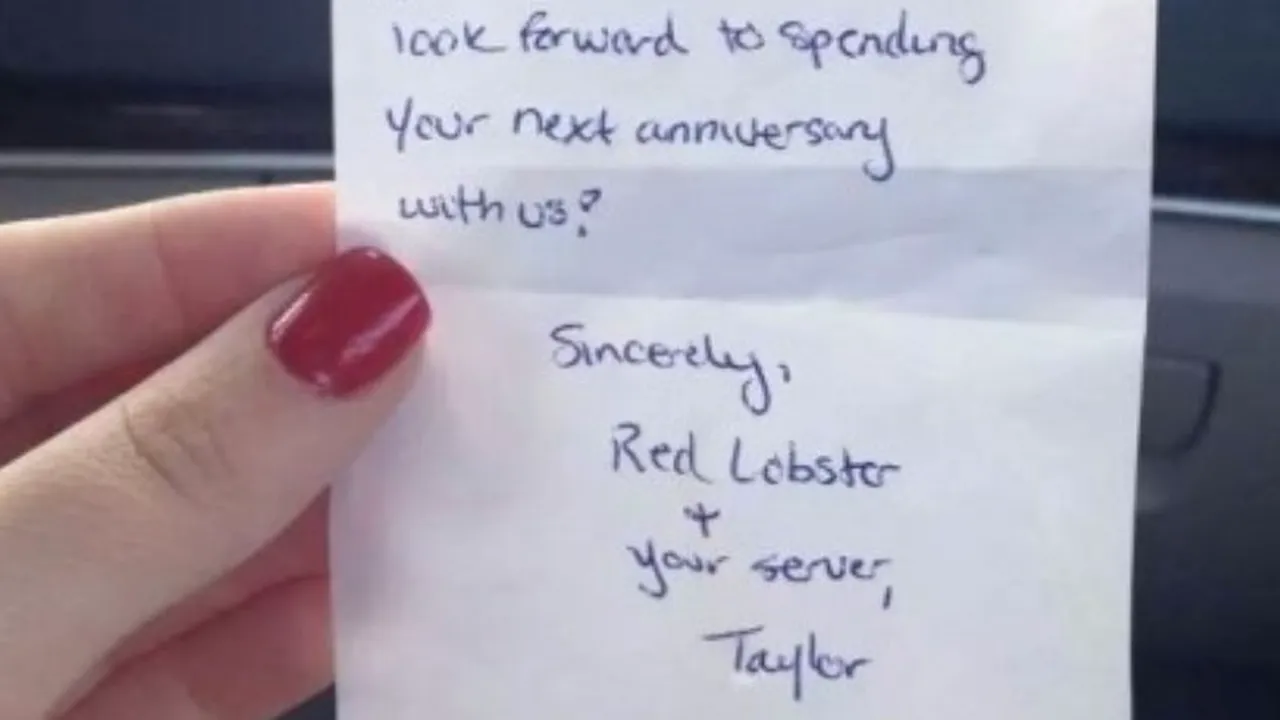 look forward to spending
your next anniversary
with us?
Sincerely,
Red Lobster
+
your server,
Taylor